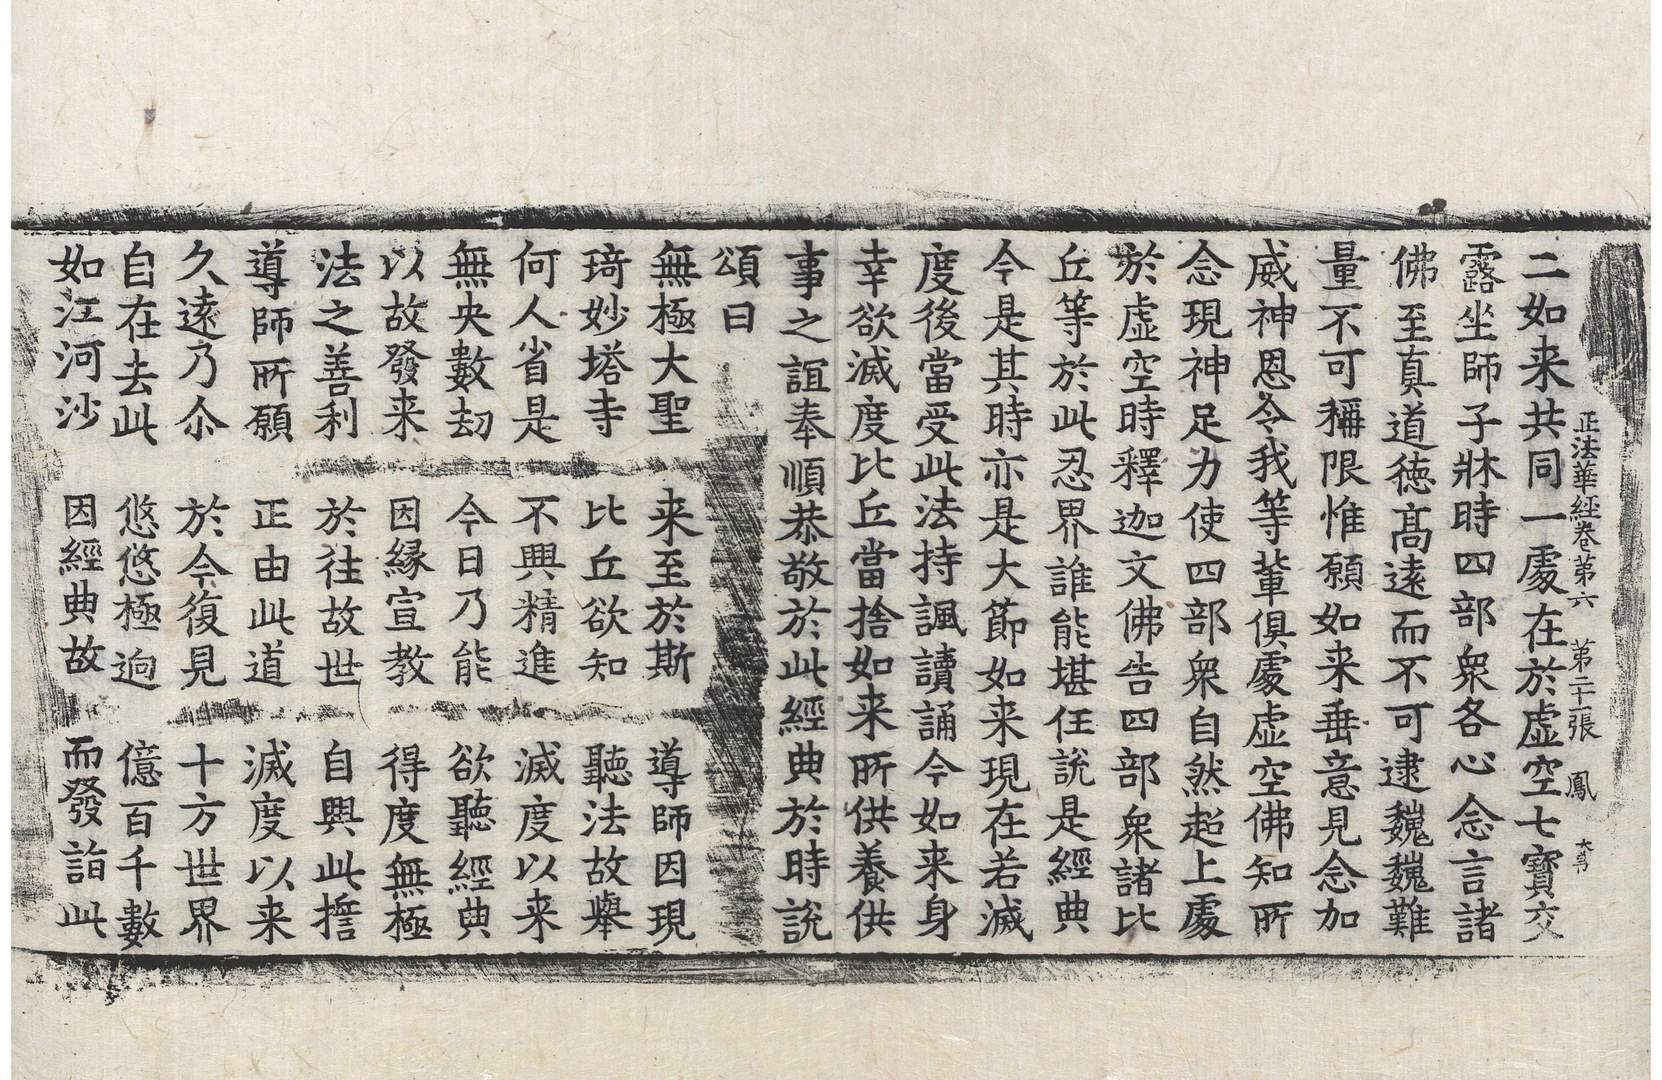 正法華經卷第六　第二十一張　鳳　大寧
二如来共同一處在於虛空七寶交
露坐師子牀時四部衆各心念言諸
佛至真道德高遠而不可逮巍巍難
量不可稱限惟願如来垂意見念加
威神恩令我等輩俱處虛空佛知所
念現神足力使四部衆自然超上處
於虛空時釋迦文佛告四部衆諸比
丘等於此忍界誰能堪任說是經典
今是其時亦是大節如来現在若滅
度後當受此法持諷讀誦今如来身
幸欲滅度比丘當捨如来所供養供
事之誼奉順恭敬於此經典於時說
頌曰
無極大聖　来至於斯　導師因現
琦妙塔寺　比丘欲知　聽法故舉
何人省是　不興精進　滅度以来
無央數劫　今日乃能　欲聽經典
以故發来　因緣宣教　得度無極
法之善利　於往故世　自興此擔
導師所願　正由此道　滅度以来
久遠乃尒　於今復見　十方世界
自在去此　悠悠極逈　億百千數
如江河沙　因經典故　而發詣此